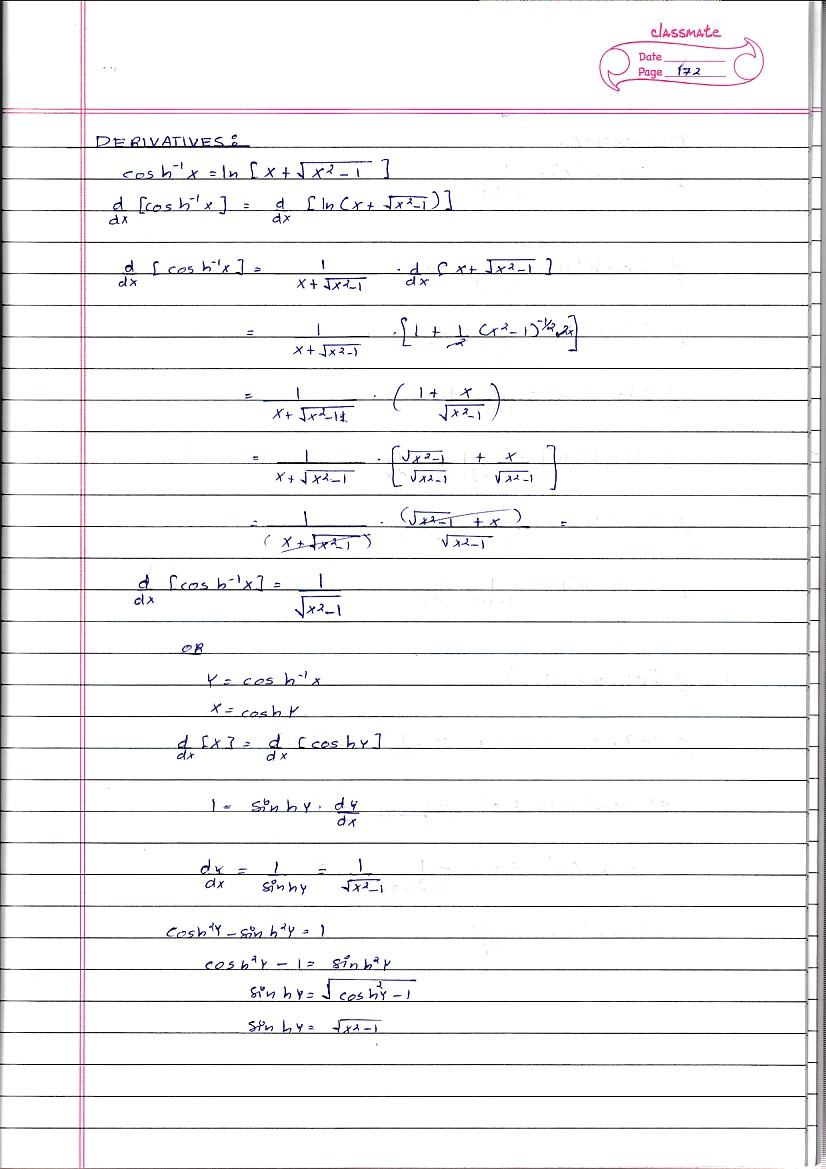 classmate
Date
Page 172
DERIVATIVES:
cosh⁻¹x = ln [x + √(x² - 1)]
d/dx [cosh⁻¹x] = d/dx [ln(x + √(x²-1))]
d/dx [cosh⁻¹x] = 1/(x + √(x²-1)) · d/dx [x + √(x²-1)]
= 1/(x + √(x²-1)) · [1 + 1/2 (x²-1)^(-1/2) · 2x]
= 1/(x + √(x²-1)) · (1 + x/√(x²-1))
= 1/(x + √(x²-1)) · [√(x²-1)/√(x²-1) + x/√(x²-1)]
= 1/(x + √(x²-1)) · (√(x²-1) + x)/√(x²-1) =
d/dx [cosh⁻¹x] = 1/√(x²-1)
OR
y = cosh⁻¹x
x = cosh y
d/dx [x] = d/dx [cosh y]
1 = sinh y · dy/dx
dy/dx = 1/sinh y = 1/√(x²-1)
cosh²y - sinh²y = 1
cosh²y - 1 = sinh²y
sinh y = √(cosh²y - 1)
sinh y = √(x²-1)